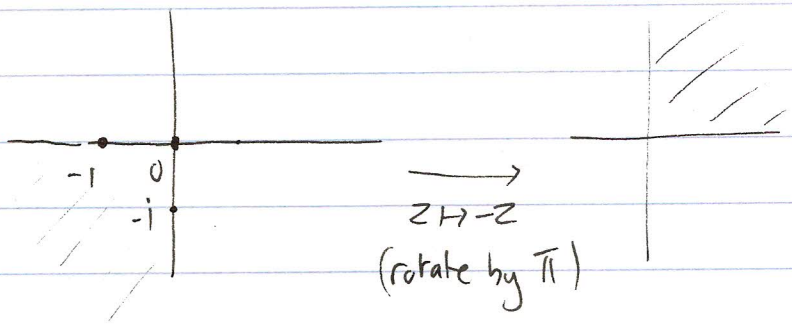 -1 0
-i
z ↦ -z
(rotate by π)